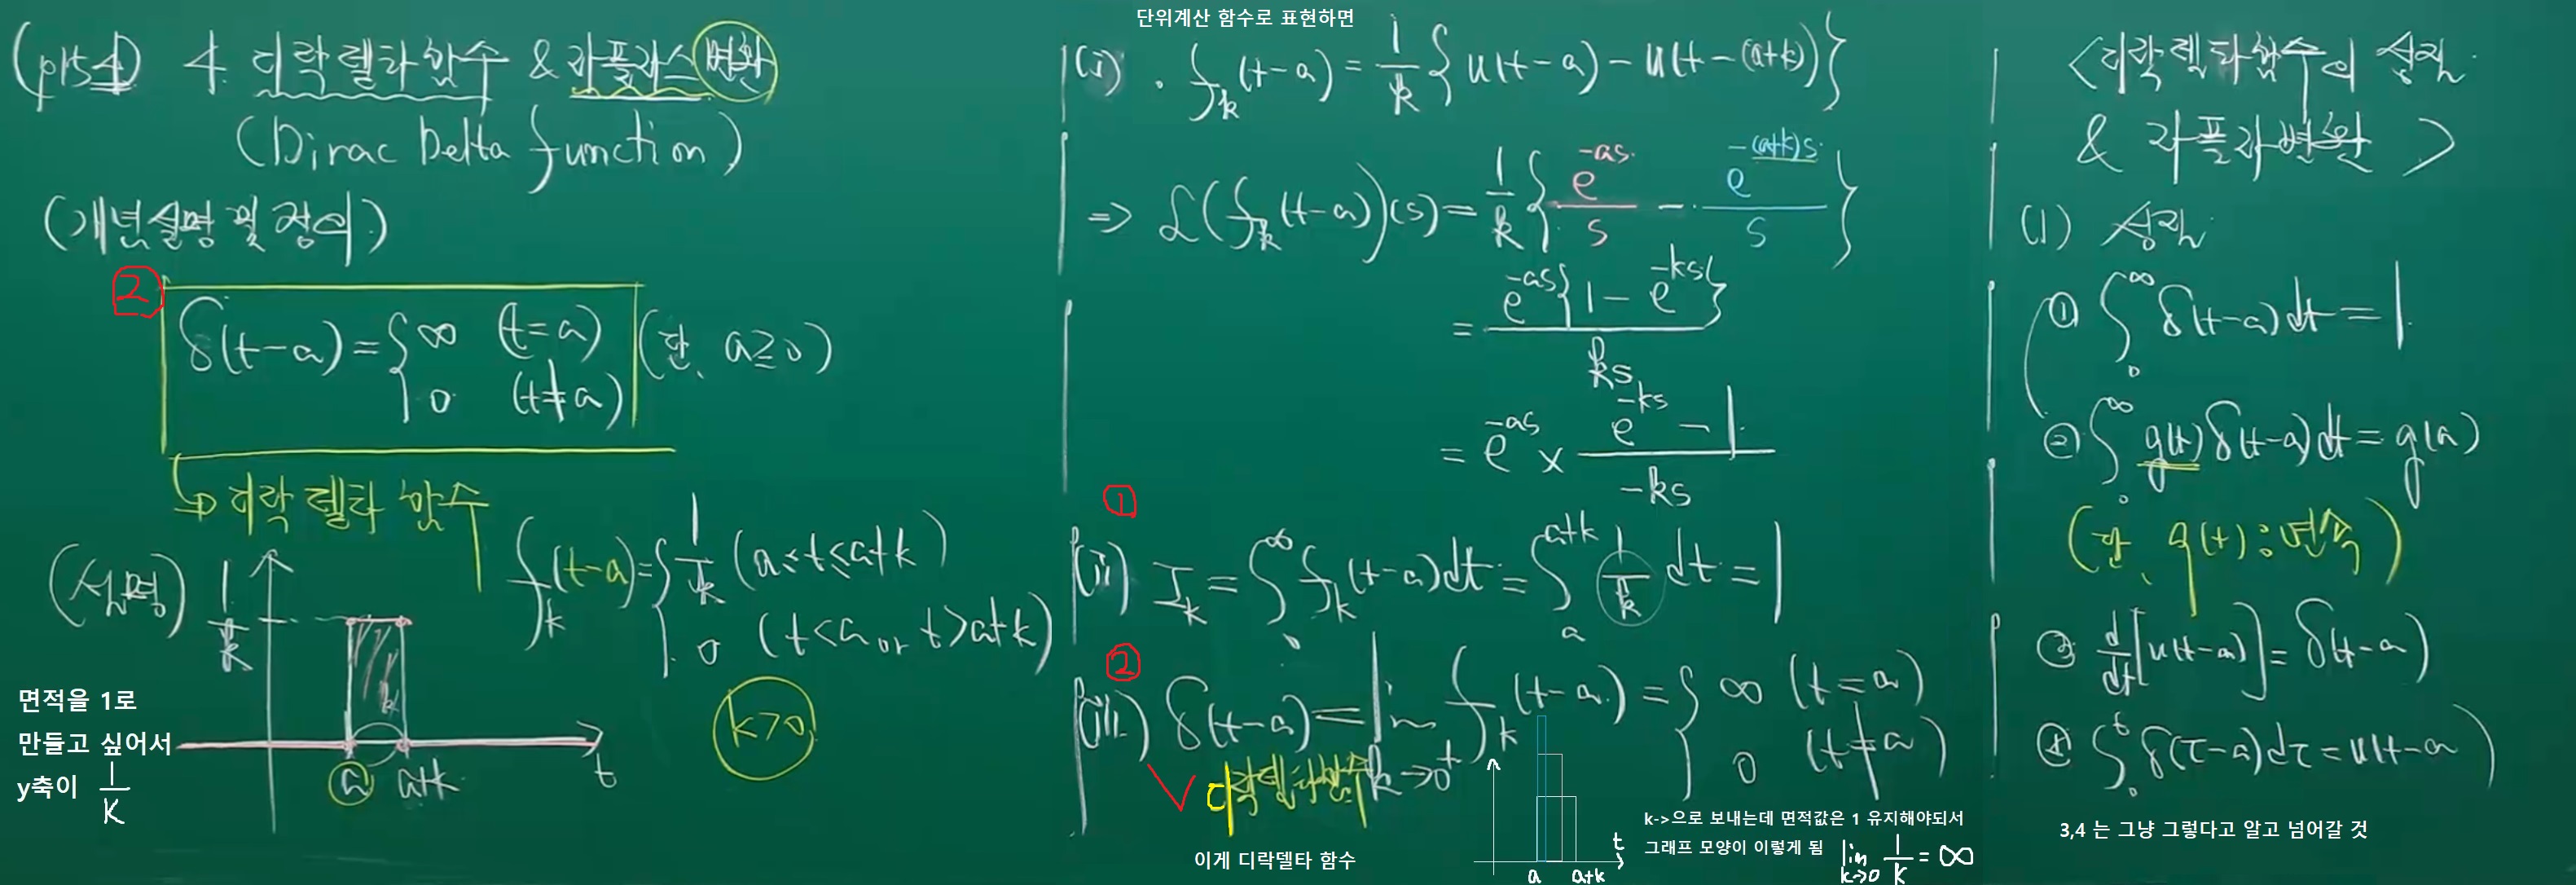 (p154) 4. 디락 델타함수 & 라플라스 변환
(Dirac Delta function)
(개념설명 및 정의)
2
δ(t-a) = { ∞ (t=a) (단, a≥0)
0 (t≠a)
↳ 디락 델타 함수
(설명)
1/k
f_k(t-a) = { 1/k (a≤t≤a+k)
0 (t<a or t>a+k)
k>0
면적을 1로
만들고 싶어서
y축이 1/K
k
a a+k t
단위계산 함수로 표현하면
(i) · f_k(t-a) = 1/k { u(t-a) - u(t-(a+k)) }
⇒ ℒ(f_k(t-a))(s) = 1/k { e^{-as}/s - e^{-(a+k)s}/s }
= e^{-as}{1 - e^{-ks}} / ks
= e^{-as} × (e^{-ks} - 1) / -ks
1
(ii) I_k = ∫_0^∞ f_k(t-a)dt = ∫_a^{a+k} 1/k dt = 1
2
(iii) δ(t-a) = lim_{k→0+} f_k(t-a) = { ∞ (t=a)
0 (t≠a)
디락델타함수
이게 디락델타 함수
a a+k t
k->으로 보내는데 면적값은 1 유지해야되서
그래프 모양이 이렇게 됨 lim_{k→0} 1/K = ∞
<디락델타함수의 성질
& 라플라변환>
(1) 성질
① ∫_0^∞ δ(t-a)dt = 1.
② ∫_0^∞ g(t)δ(t-a)dt = g(a)
(단, g(t) : 연속)
③ d/dt[u(t-a)] = δ(t-a)
④ ∫_0^t δ(τ-a)dτ = u(t-a)
3,4 는 그냥 그렇다고 알고 넘어갈 것